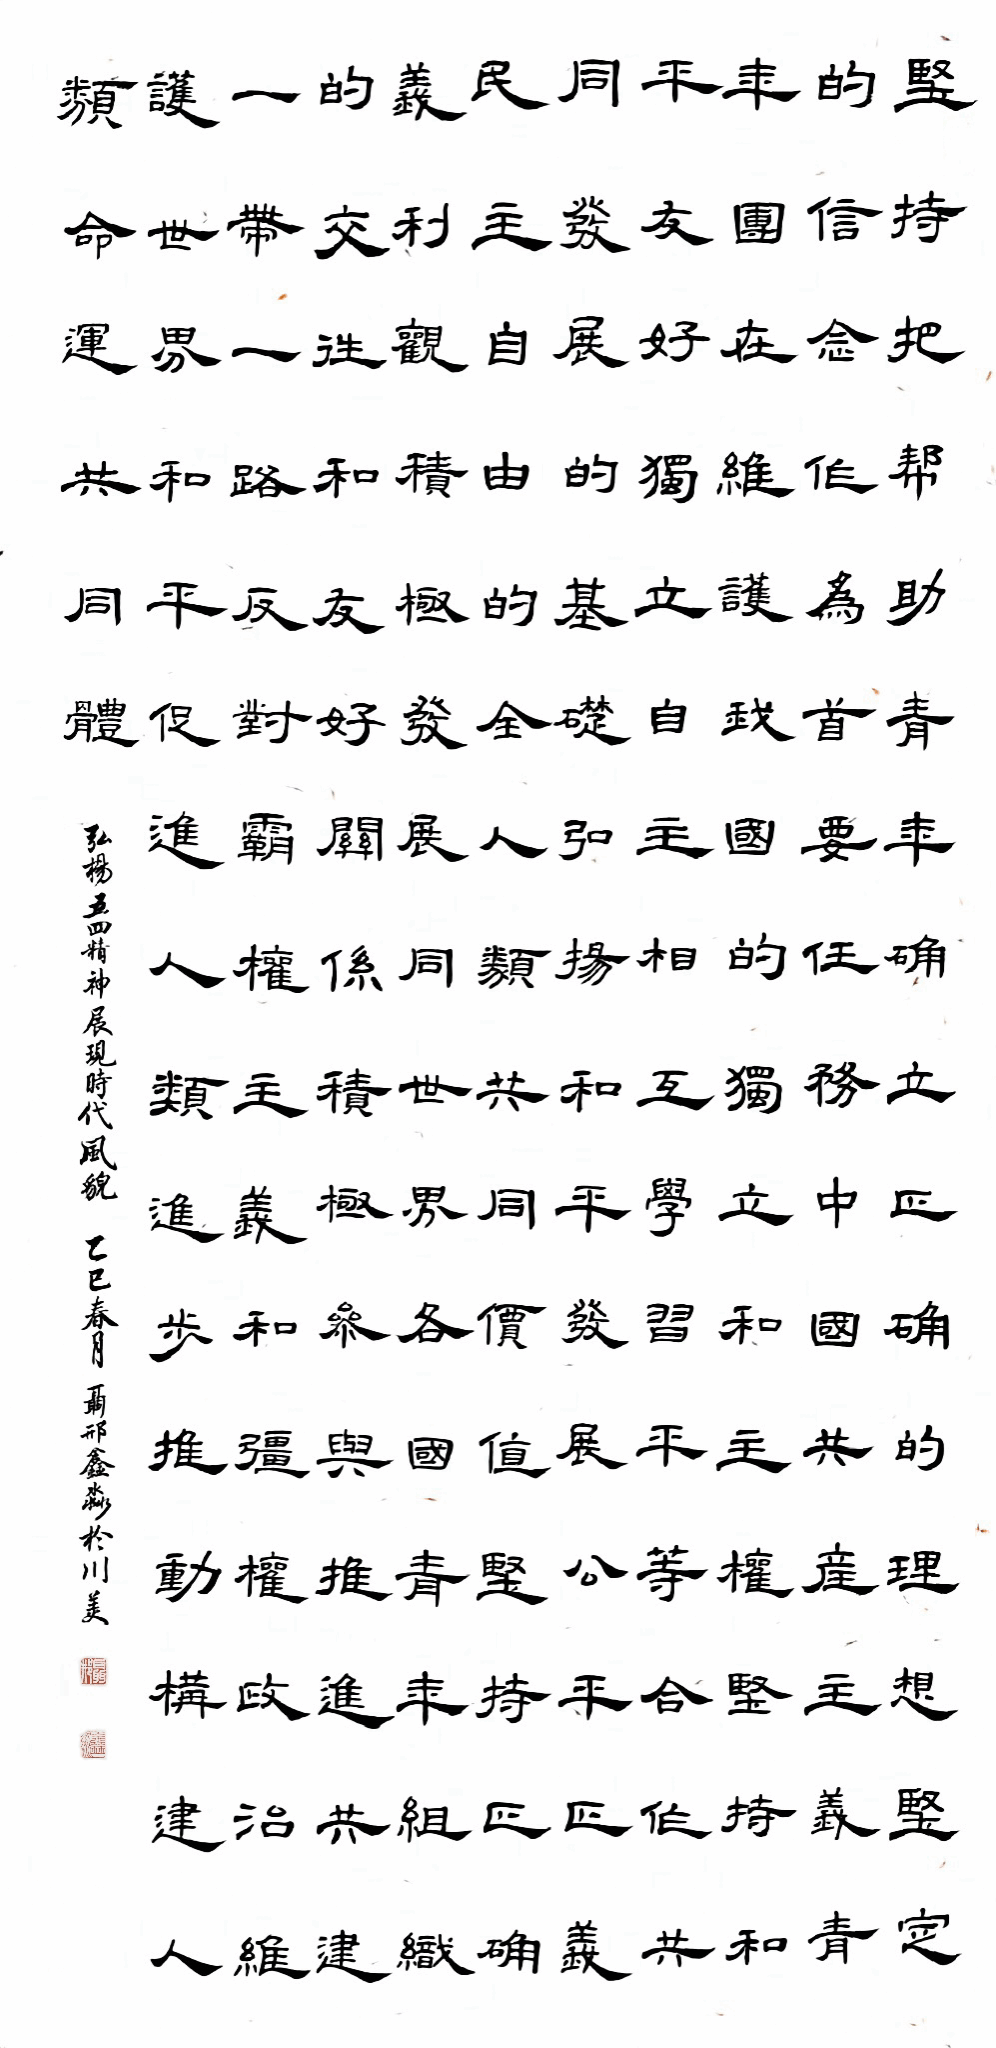 堅持把帮助青年确立正确的理想堅定
的信念作為首要任務中國共産主義青
年團在維護我國的獨立和主權堅持和
平友好獨立自主相互學習平等合作共
同發展的基礎弘揚和平發展公平正義
民主自由的全人類共同價值堅持正确
義利觀積極發展同世界各國青年組織
的交往和友好關係積極參與推進共建
一帶一路反對霸權主義和彊權政治維
護世界和平促進人類進步推動構建人
類命運共同體
弘揚五四精神展現時代風貌 乙巳春月 聶邢鑫淼於川美